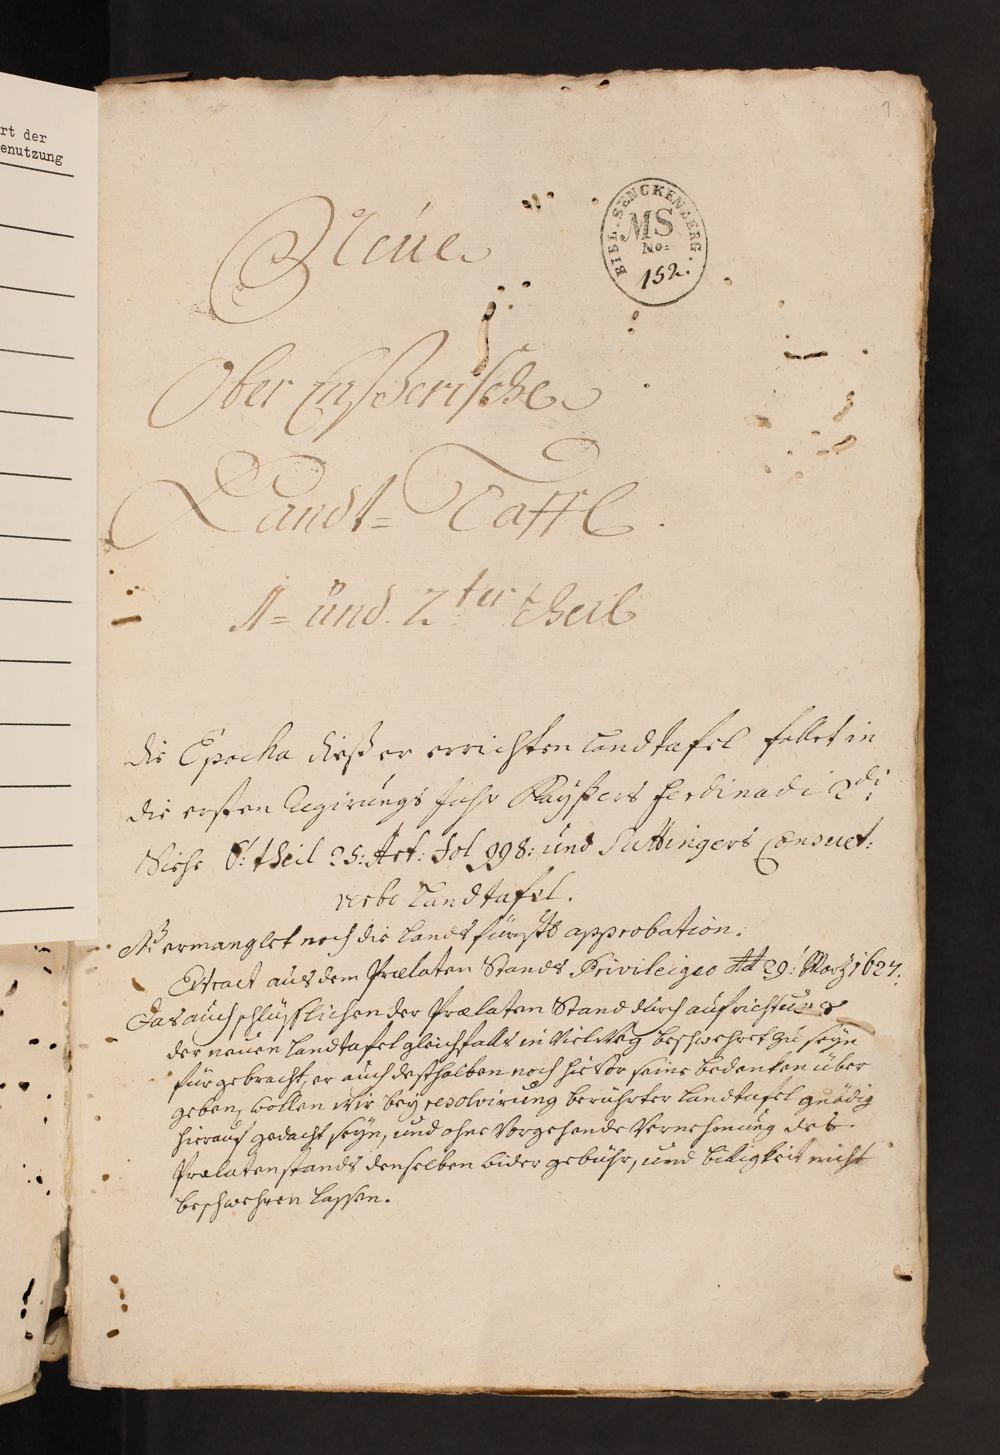 rt der
enutzung
1
BIBL. SENCKENBERG.
MS
No:
152.
Neüe
Ober Enßerische
Landt= Taffl
1= ünd. 2ter theil
die Epocha dießer errichten Landtafel fallet in
die ersten Regirüngs Jahr Kayßers Ferdinadi 2di
Siehe 6: theil 25: Art: Fol 998: ünd Süttingers Consuet:
verbo Landtafel.
NB ermanglet noch die Landsfürstl approbation.
Extract aus dem Prælaten Stands Privilegeo dd 29: Martz 1627:
Das auch schlüsslichen der Prælaten Stand durch aufrichtung
der neuen Landtafel gleichfalls in viel weg beschwehret zu seyn
fürgebracht, er auch desthalben noch hievor seine bedenken über
geben, wollen wir bey resolvirung berührter Landtafel gnädig
hierauf gedacht seyn, und ohne vorgehende vernehmung des
Prælatenstands denselben wider gebühr, und billigkeit nicht
beschwehren lassen.